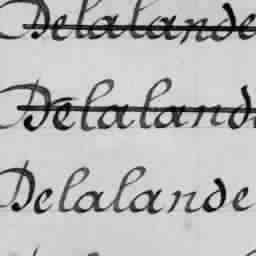 Delalande
Delaland
Delalande